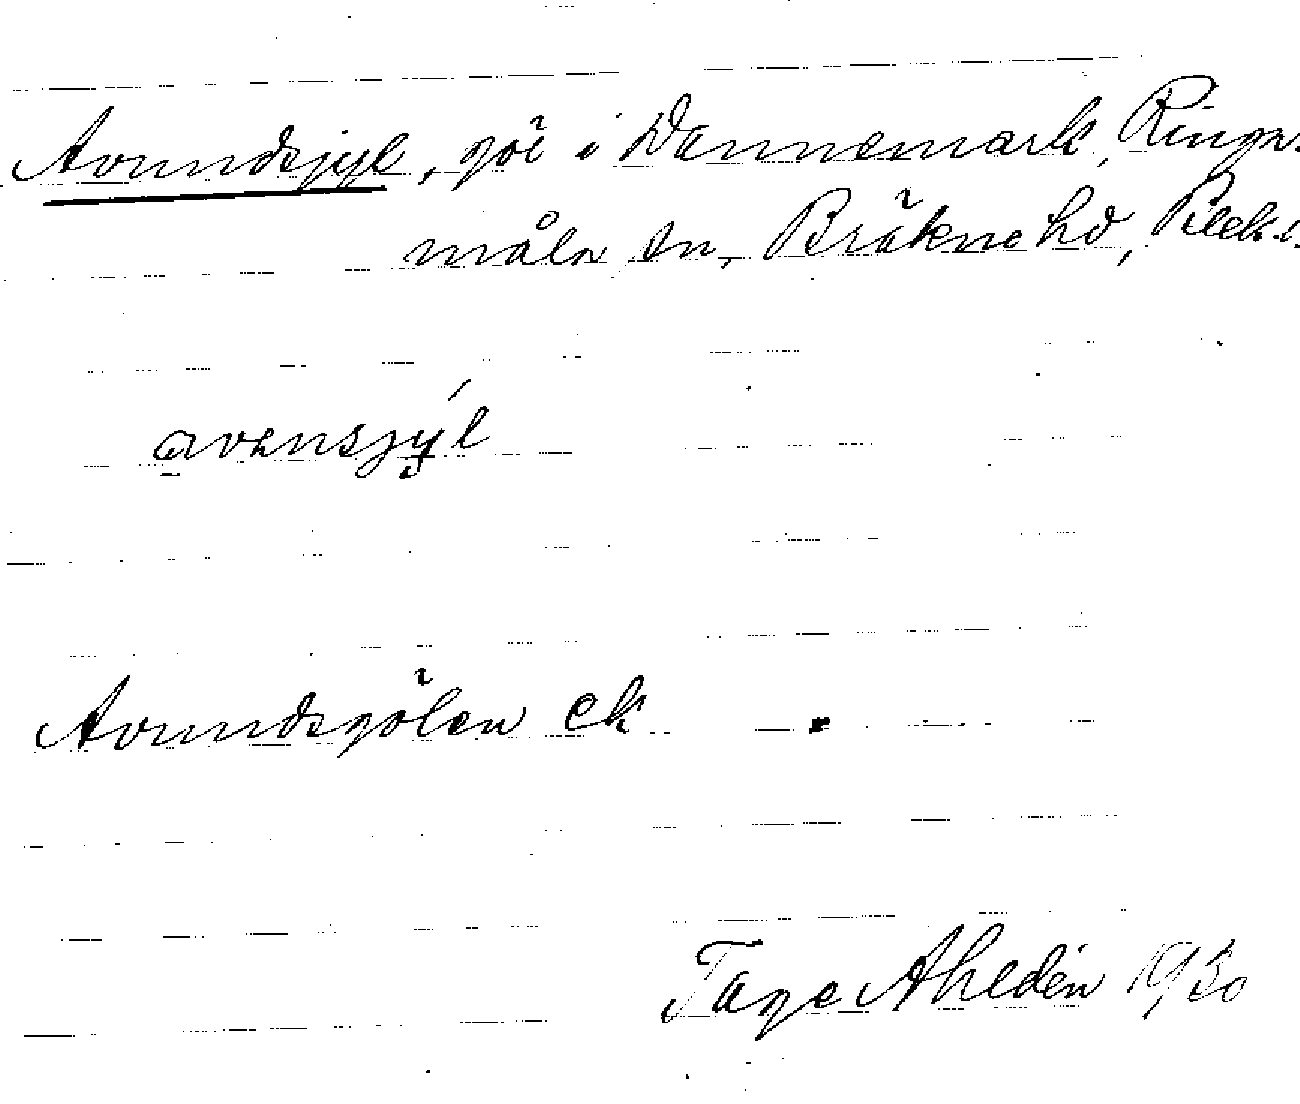 Avundsjyl, göl i Dannemark, Ringa-
måla sn, Bräkne hd, Blek.
avensjyl
Avundsgölen ek
Tage Ahldén 1930